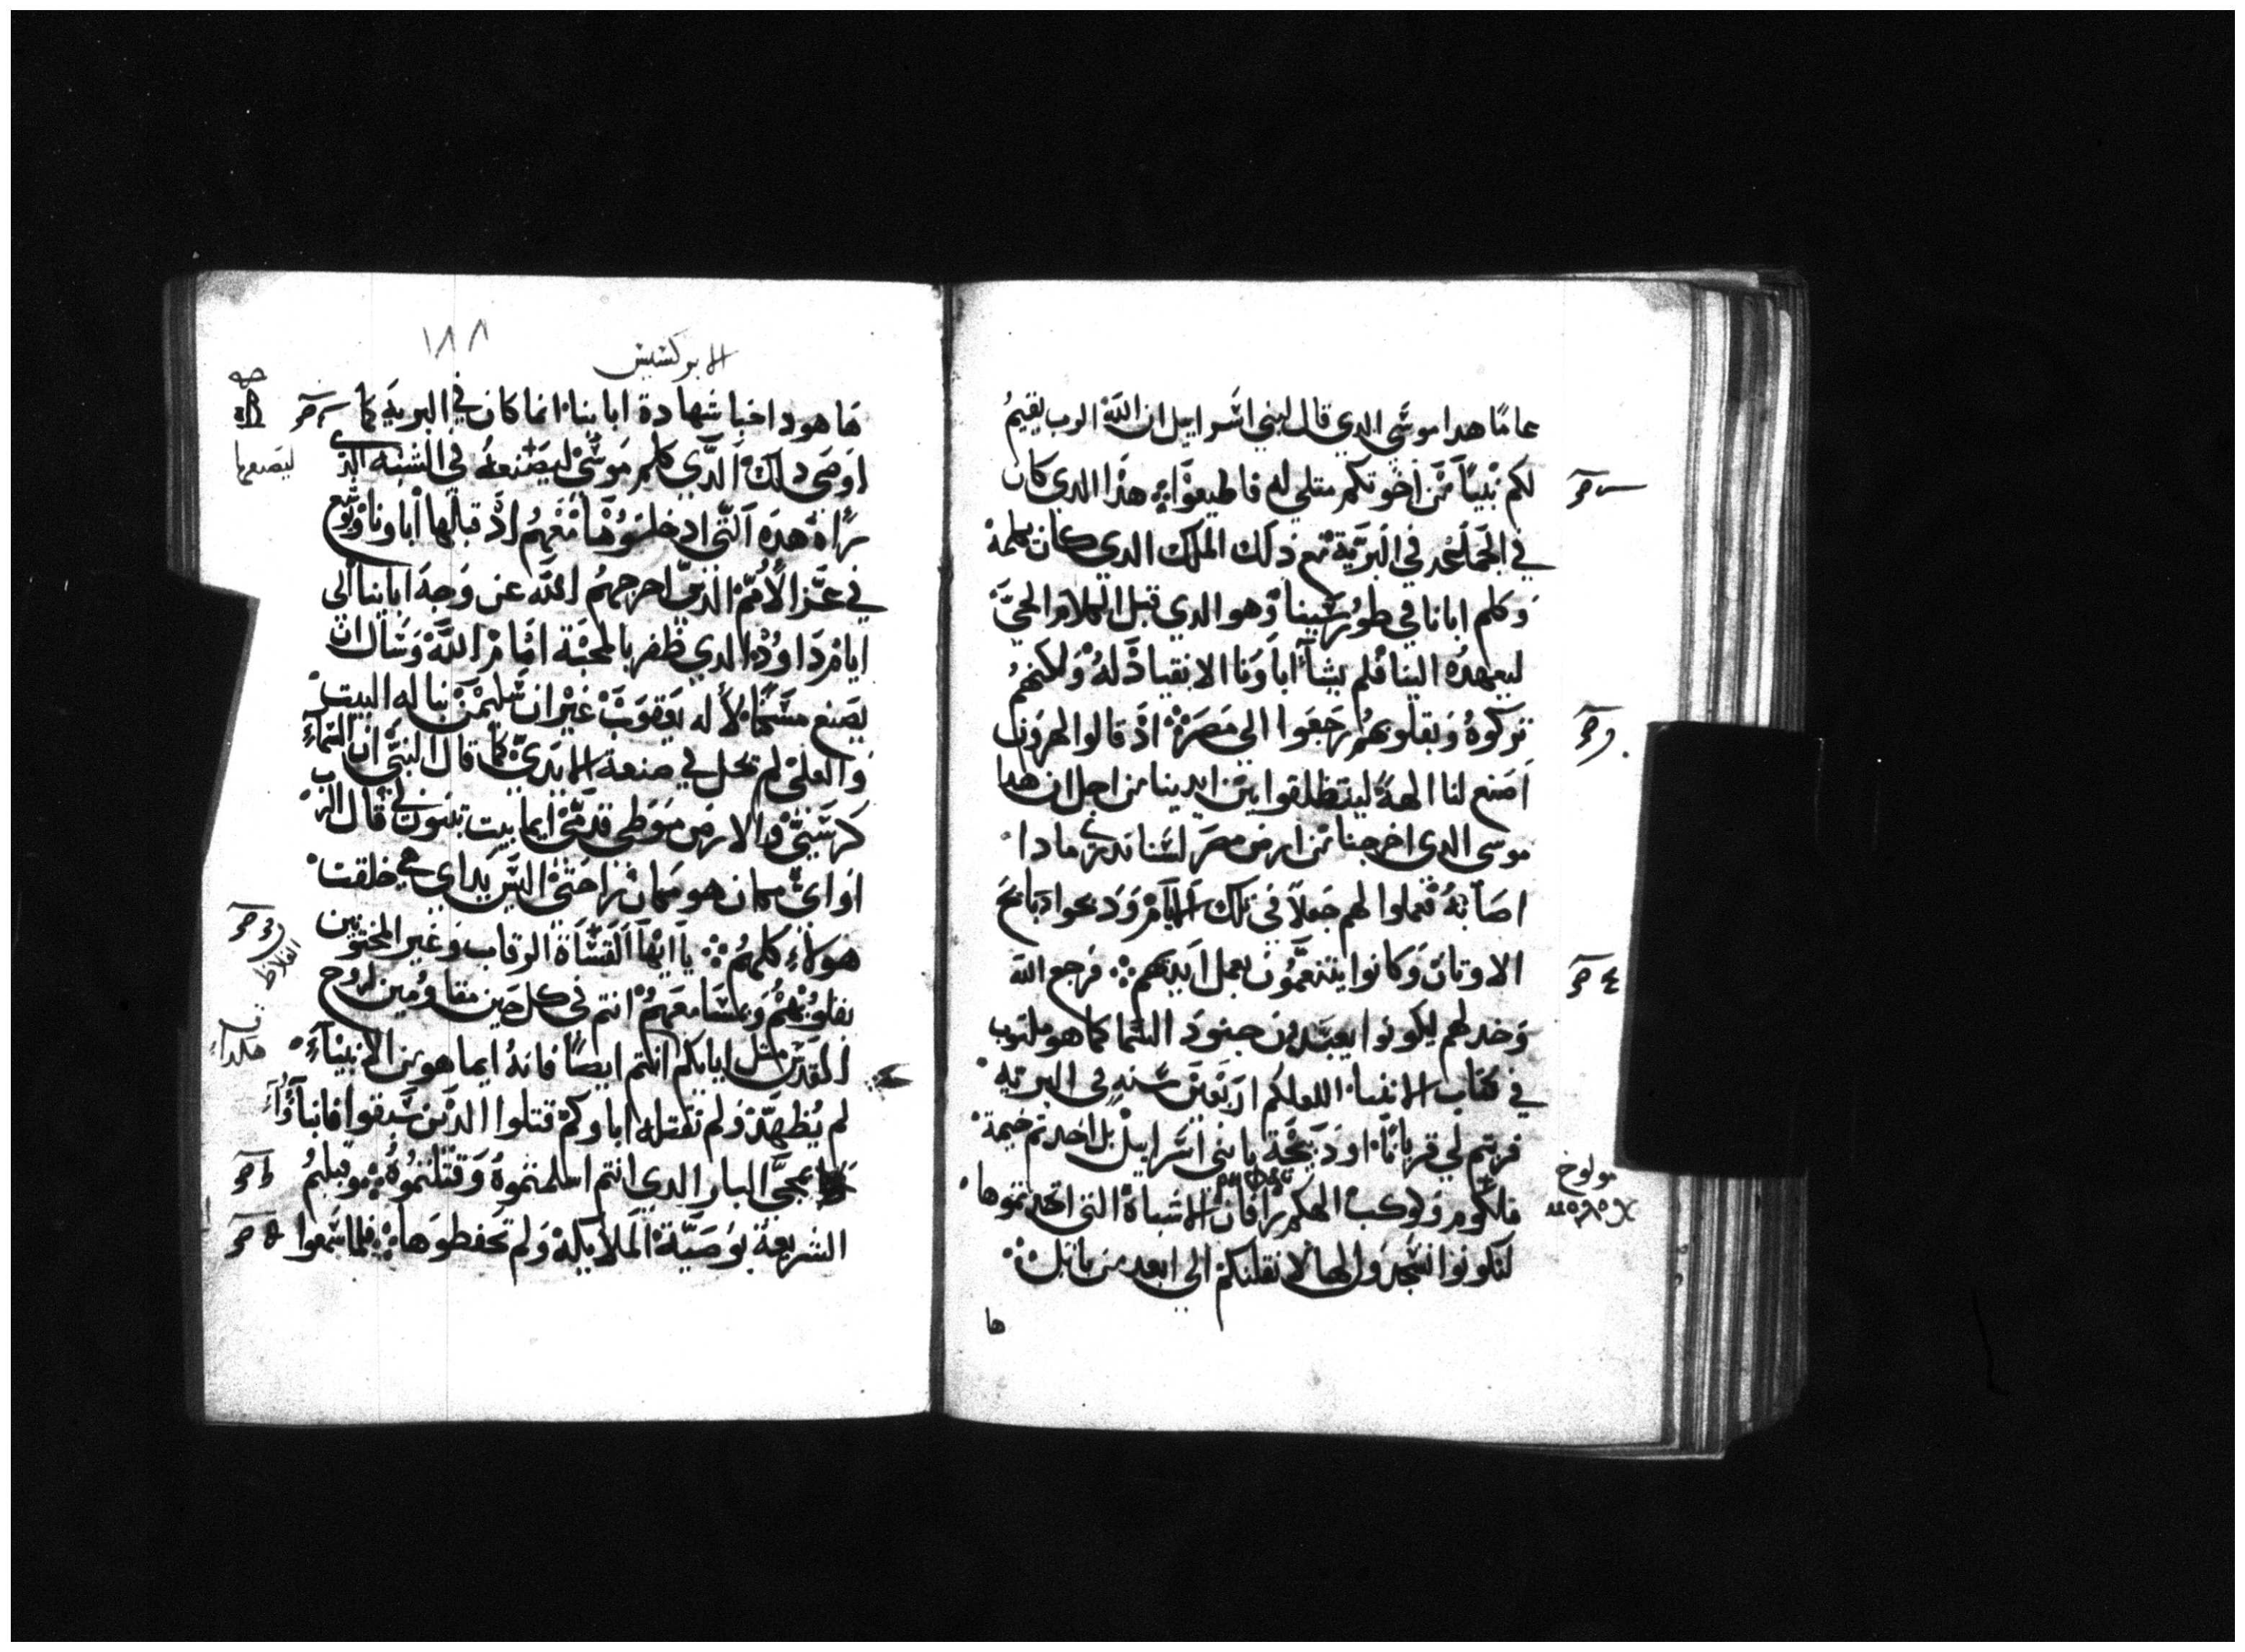 عاما هدا موسي الدي قال لبني اسراييل ان الله الرب يقيم
لكم نبيا من اخوتكم متلي له فاطيعوا هذا الدي كان
في البرية مع ذلك الملك الدي كان يكلمه
وكلم ابانا في طور سينا وهو الدي قبل الكلام الحي
اليعهده الينا فلم يشا اباونا الانقياد له ولكنهم
تركوه وبقلوبهم رجعوا الي مصر اذ قالوا لهرون
اصنع لنا الهة لينطلقوا بين ايدينا من اجل ان هدا
موسى الدي اخرجنا من ارض مصر لسنا ندري ما دا
اصابه فعملوا لهم عجلا في تلك الايام ودبحوا دبايح
الاوتان وكانوا يتنعمون بعمل ايديهم فرجع الله
وخدلهم ليكونوا يعبدون جنود السما كما هو مكتوب
في كتاب الانبيا لعلكم اربعين سنه في البريه
قربتم لي قربانا او دبيحة يا بني اسراييل بل اخدتم خيمة
ملكوم وكوكب الهكم رافان الاشباه التي اتخدتموها
لتكونوا تسجدوا لها لانقلنكم الي ابعد من بابل
ها
مولوخ
الابركسيس
١٨٨
ها هودا خبا شهادة ابابنا انما كان في البرية كما
اوصى دلك الدي كلم موسى ليصنعه في الشبه الدي
راه هده التي ادخلوها معهم اذ قبلها اباونا ويشوع
في عز الامم الدين اخرجهم الله عن وجه اباينا الى
ايام داود الدي ظفر بالمحبة امام الله وسال ان
يصنع مسكنا لاله يعقوب غير ان سليمن بنا له البيت
والعلي لم يحل في صنعة الايدي كما قال النبي ان السماء
كرسيي والارض موطي قدمي ايما بيت تبنون لي قال الرب
او اي مكان هو مكان راحتي اليس يداي هي خلقت
هولاء كلهم يا ايها القساة الرقاب وغير المختونين
بقلوبهم وبمسامعهم انتم في كل حين مقاومين لروح
القدس متل ابايكم انتم ايضا فانه ايما هو من الانبياء
لم يظهد ولم تقتله اباوكم قتلوا الدين سبقوا فانباوا
بمجي البار الدي انتم اسلمتموه وقتلتموه وقبلتم
الشريعة بوصية الملايكة ولم تحفظوها فلما سمعوا
ليصنعها
الغلاظ
هكدا